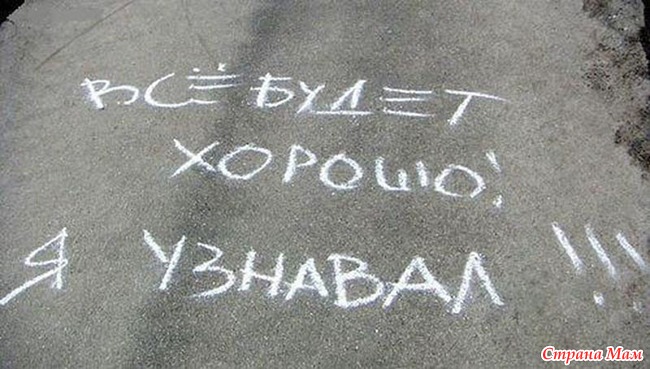 ВСЁ БУДЕТ
ХОРОШО!
Я УЗНАВАЛ!!!
Страна Мам